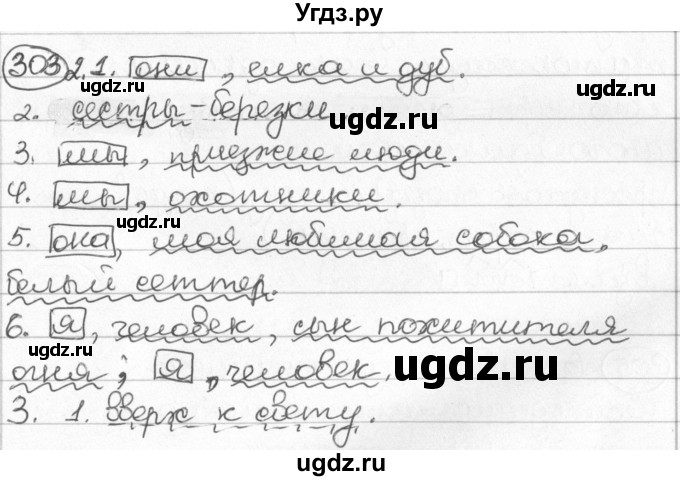 Угдз.ру
303 2.1. они, елка и дуб.
2. сестры-березки
3. мы, приезжие люди.
4. мы, охотники.
5. она, моя любимая собака,
белый сеттер.
6. я, человек, сын похитителя
огня; я, человек.
3. 1. Вверх к свету.
ugdz.ru
ugdz.ru
ugdz.ru
ugdz.ru
ugdz.ru
ugdz.ru
ugdz.ru
ugdz.ru
ugdz.ru
ugdz.ru